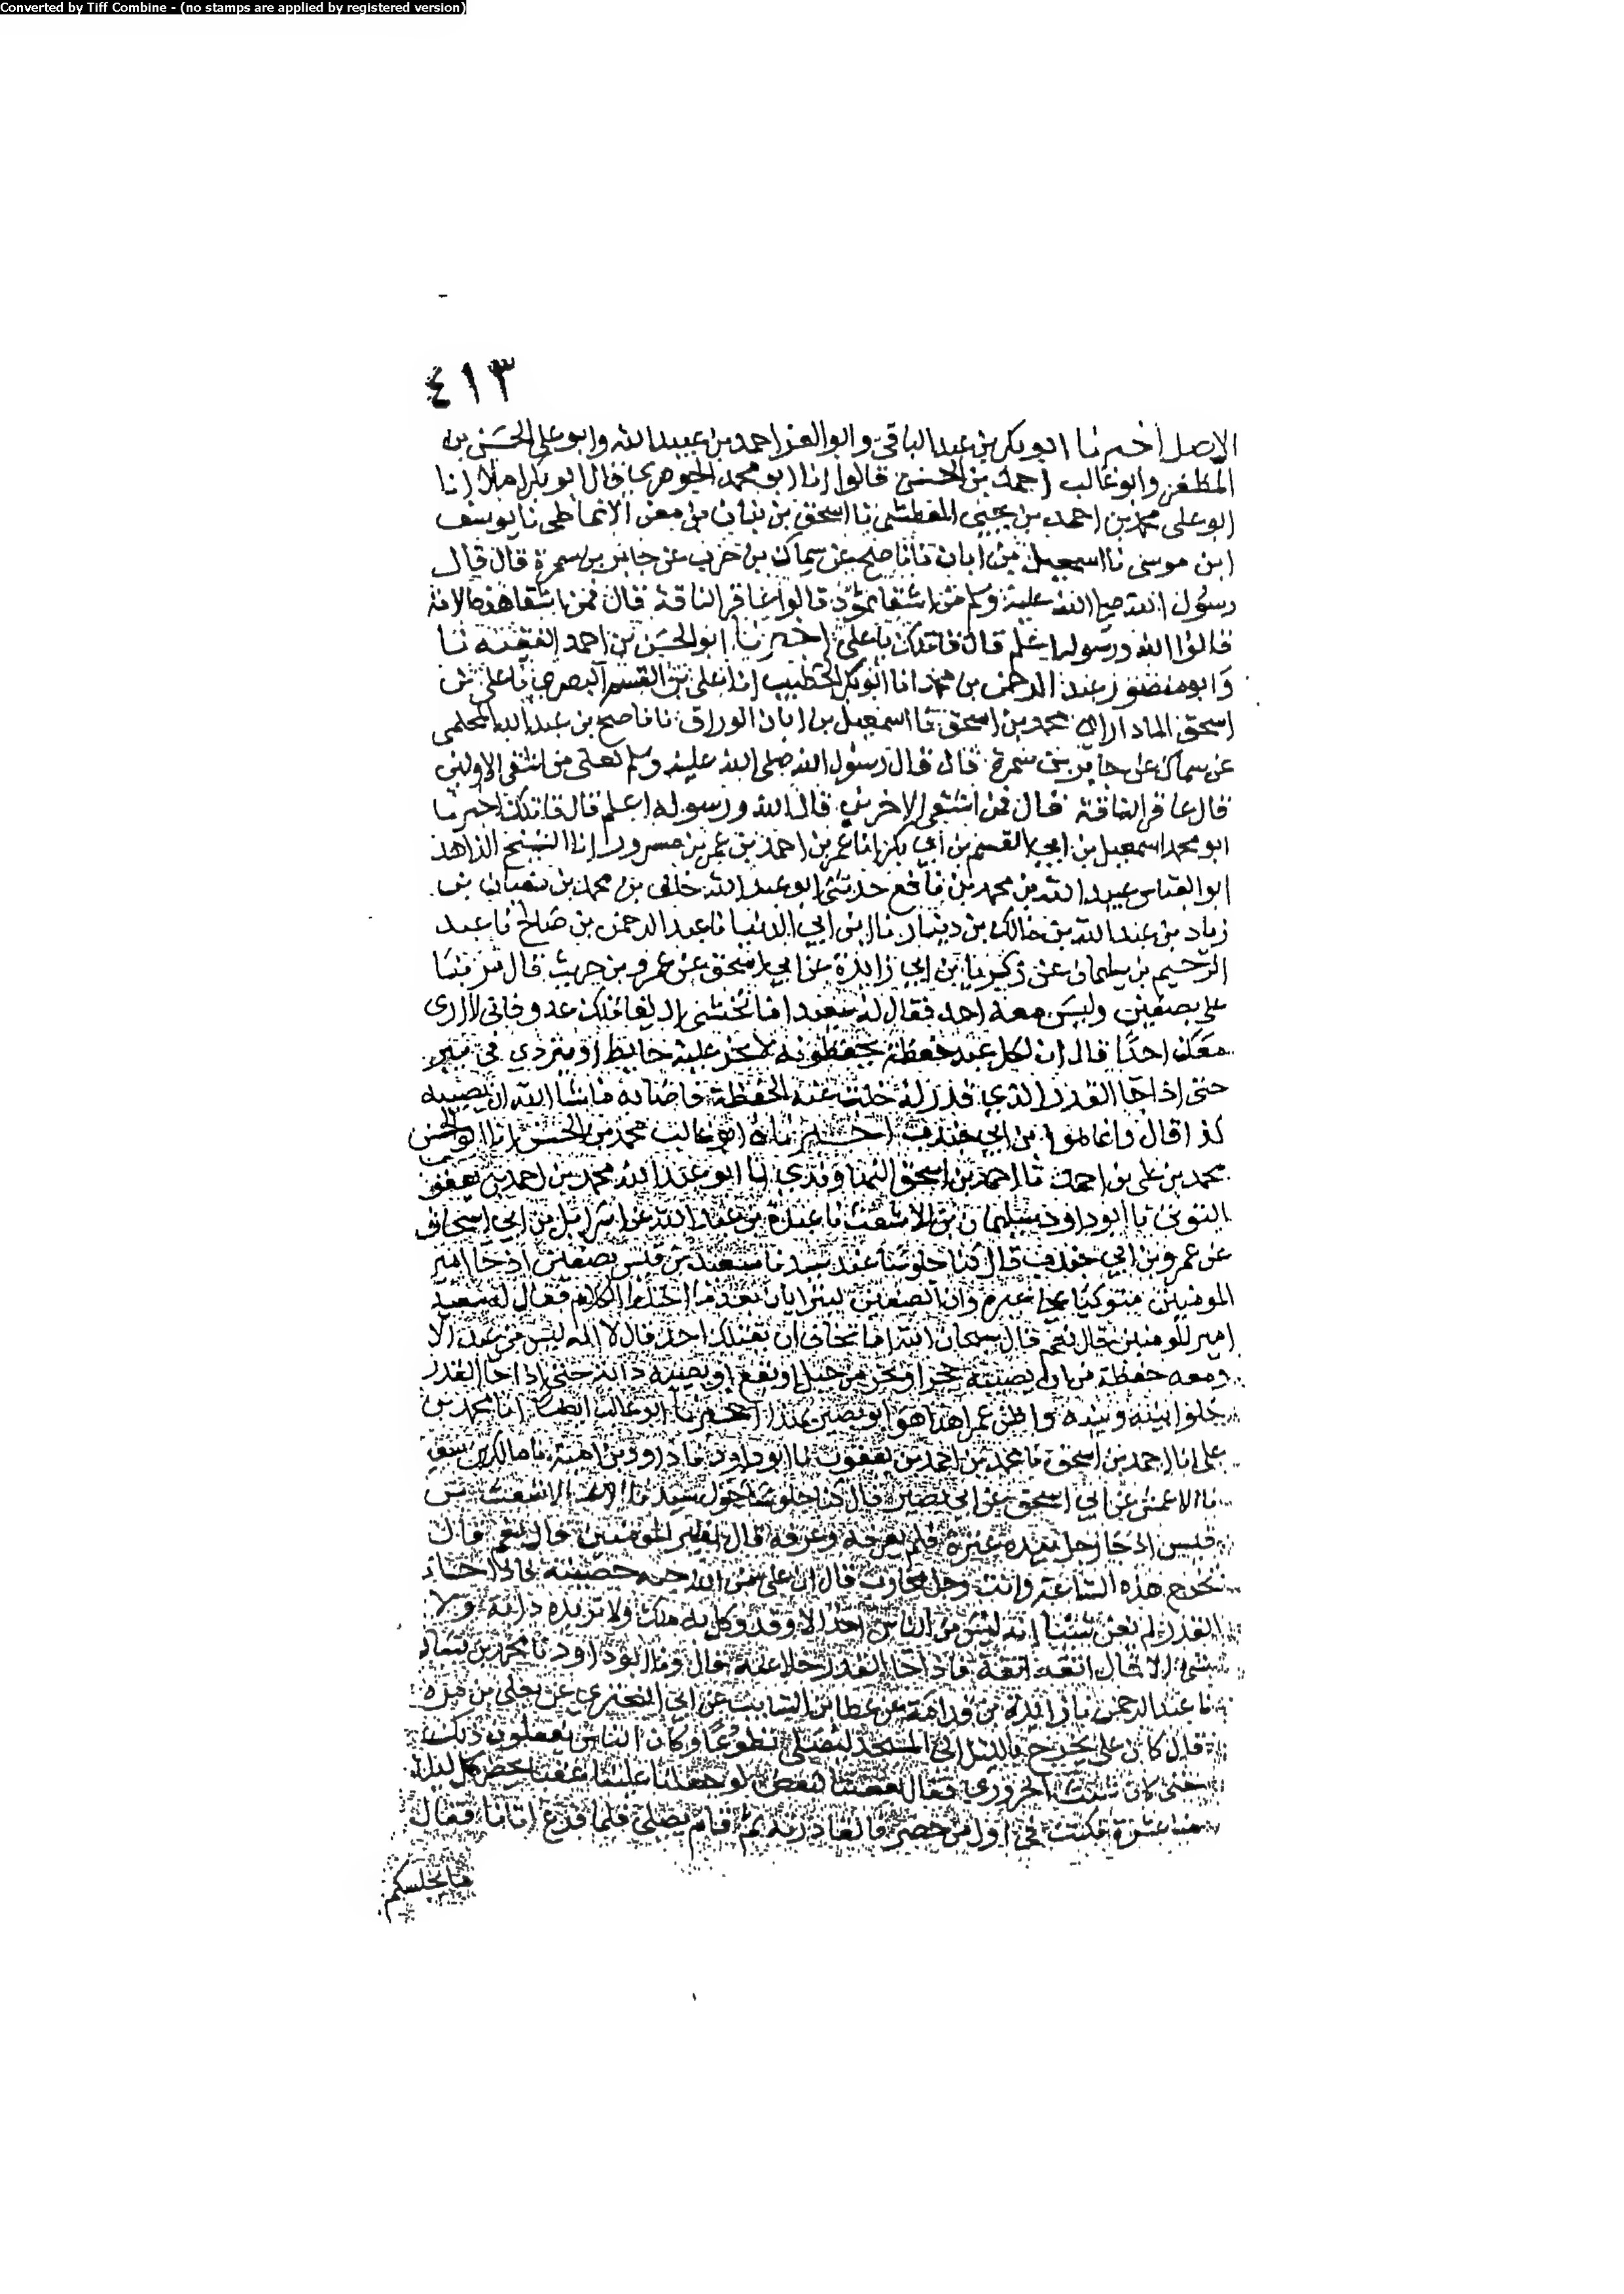 Converted by Tiff Combine - (no stamps are applied by registered version)
٤١٣
الاصل اخبرنا ابو بكر بن عبد الباقي وابو العز احمد بن عبيد الله وابو علي الحسن بن
المظفر وابو غالب احمد بن الحسن قالوا انا ابو محمد الجوهري قال ابو بكر املا انا
ابو علي محمد بن احمد بن يحيى العطشي نا اسحق بن بنان بن معن الانماطي نا يوسف
ابن موسى نا اسمعيل بن ابان نا ناصح عن سماك بن حرب عن جابر بن سمرة قال قال
رسول الله صلى الله عليه وسلم من اشقا ثمود قالوا عاقر الناقة قال فمن اشقا هذه الامة
قالوا الله ورسوله اعلم قال قاتلك يا علي اخبرنا ابو الحسن بن احمد الفقيه نا
وابو منصور عبد الرحمن بن محمد انا ابو بكر الخطيب انا علي بن القسم البصري نا علي بن
اسحق الماد اراى محمد بن اسحق نا اسمعيل بن ابان الوراق نا ناصح بن عبد الله المحلمي
عن سماك عن جابر بن سمرة قال قال رسول الله صلى الله عليه وسلم لعلي من اشقى الاولين
قال عاقر الناقة قال فمن اشقى الاخرين قال الله ورسوله اعلم قال قاتلك اخبرنا
ابو محمد اسمعيل بن ابي القسم بن ابي بكر انا عمر بن احمد بن عمر بن مسرور انا الشيخ الزاهد
ابو العباس عبيد الله بن محمد بن نافع حدثني ابو عبد الله خلف بن محمد بن
زياد بن عبد الله بن خالد بن دينار نا ابن ابي الدنيا نا عبد الرحمن بن صالح نا عبد
الرحيم بن سليمان عن زكريا بن ابي زايدة عن ابي اسحق عن عمرو بن حريث قال
علي بصفين وليس معه احد فقال له سعيد اما تخشى ان يغالك عدو فاني لا ارى
معك احدا قال ان لكل عبد حفظة يحفظونه لا يخر عليه حايط او يتردى في بير
حتى اذا جا القدر الذي قدر له خلت عنه الحفظة فاصابه ما شا الله ان يصيبه
كذا قال وانما هو ابن ابي جندب اخبرناه ابو غالب محمد بن الحسن انا ابو الحسن
محمد بن علي بن احمد نا احمد بن اسحق النهاوندي نا ابو عبد الله محمد بن احمد بن يعقوب
المتوثي نا ابو داود سليمان بن الاشعث نا عبدة بن عبد الله عن اسرايل عن ابي اسحاق
عن عمرو بن ابي جندب قال كنا جلوسا عند سيدنا سعيد بن قيس بصفين اذ جا امير
المومنين متوكيا على عنزه وان الصفين ليترايان بعد ما اختلط الكلام فقال له سعيد
امير المومنين قال نعم قال سبحان الله اما تخاف ان يقتلك احد قال لا انه ليس من عبد الا
ومعه حفظة من ان يصيبه حجر او يخر من جبل او يقع او يصيبه دابة حتى اذا جا القدر
خلوا بينه وبينه واظن عمرا هذا هو ابو بصير اخبرنا ابو غالب ايضا انا محمد بن
علي انا احمد بن اسحق نا محمد بن احمد بن يعقوب نا ابو داود نا داود بن امية نا مالك بن سعير
نا الاعمش عن ابي اسحق عن ابي بصير قال كنا جلوسا حول سيدنا الاشعث بن
قيس اذ جا رجل بيده عنزة فلم يعرفه وعرفه قال امير المومنين قال نعم قال
تخرج هذه الساعة وانت رجل محارب قال ان علي من الله جنة حصينة فاذا جا
القدر لم يغن شيئا انه ليس من الناس احد الا وقد وكل به ملك ولا تريده دابة ولا
شي الا قال اتقه اتقه فاذا جا القدر خلا عنه قال وقال ابو داود نا محمد بن بشار
نا عبد الرحمن نا زايدة بن قدامة عن عطا بن السايب عن ابي البختري عن يعلى بن مرة
قال كان علي يخرج بالليل الى المسجد ليصلي تطوعا وكان الناس يفعلون ذلك
حتى كان شبث الحروري فقال بعضنا لبعض لو جعلنا علينا عقبا يحضر كل ليلة
منا عشرة فكنت في اول من حضر فالقا درته ثم قام يصلي فلما فرغ اتانا فقال
ما يجلسكم